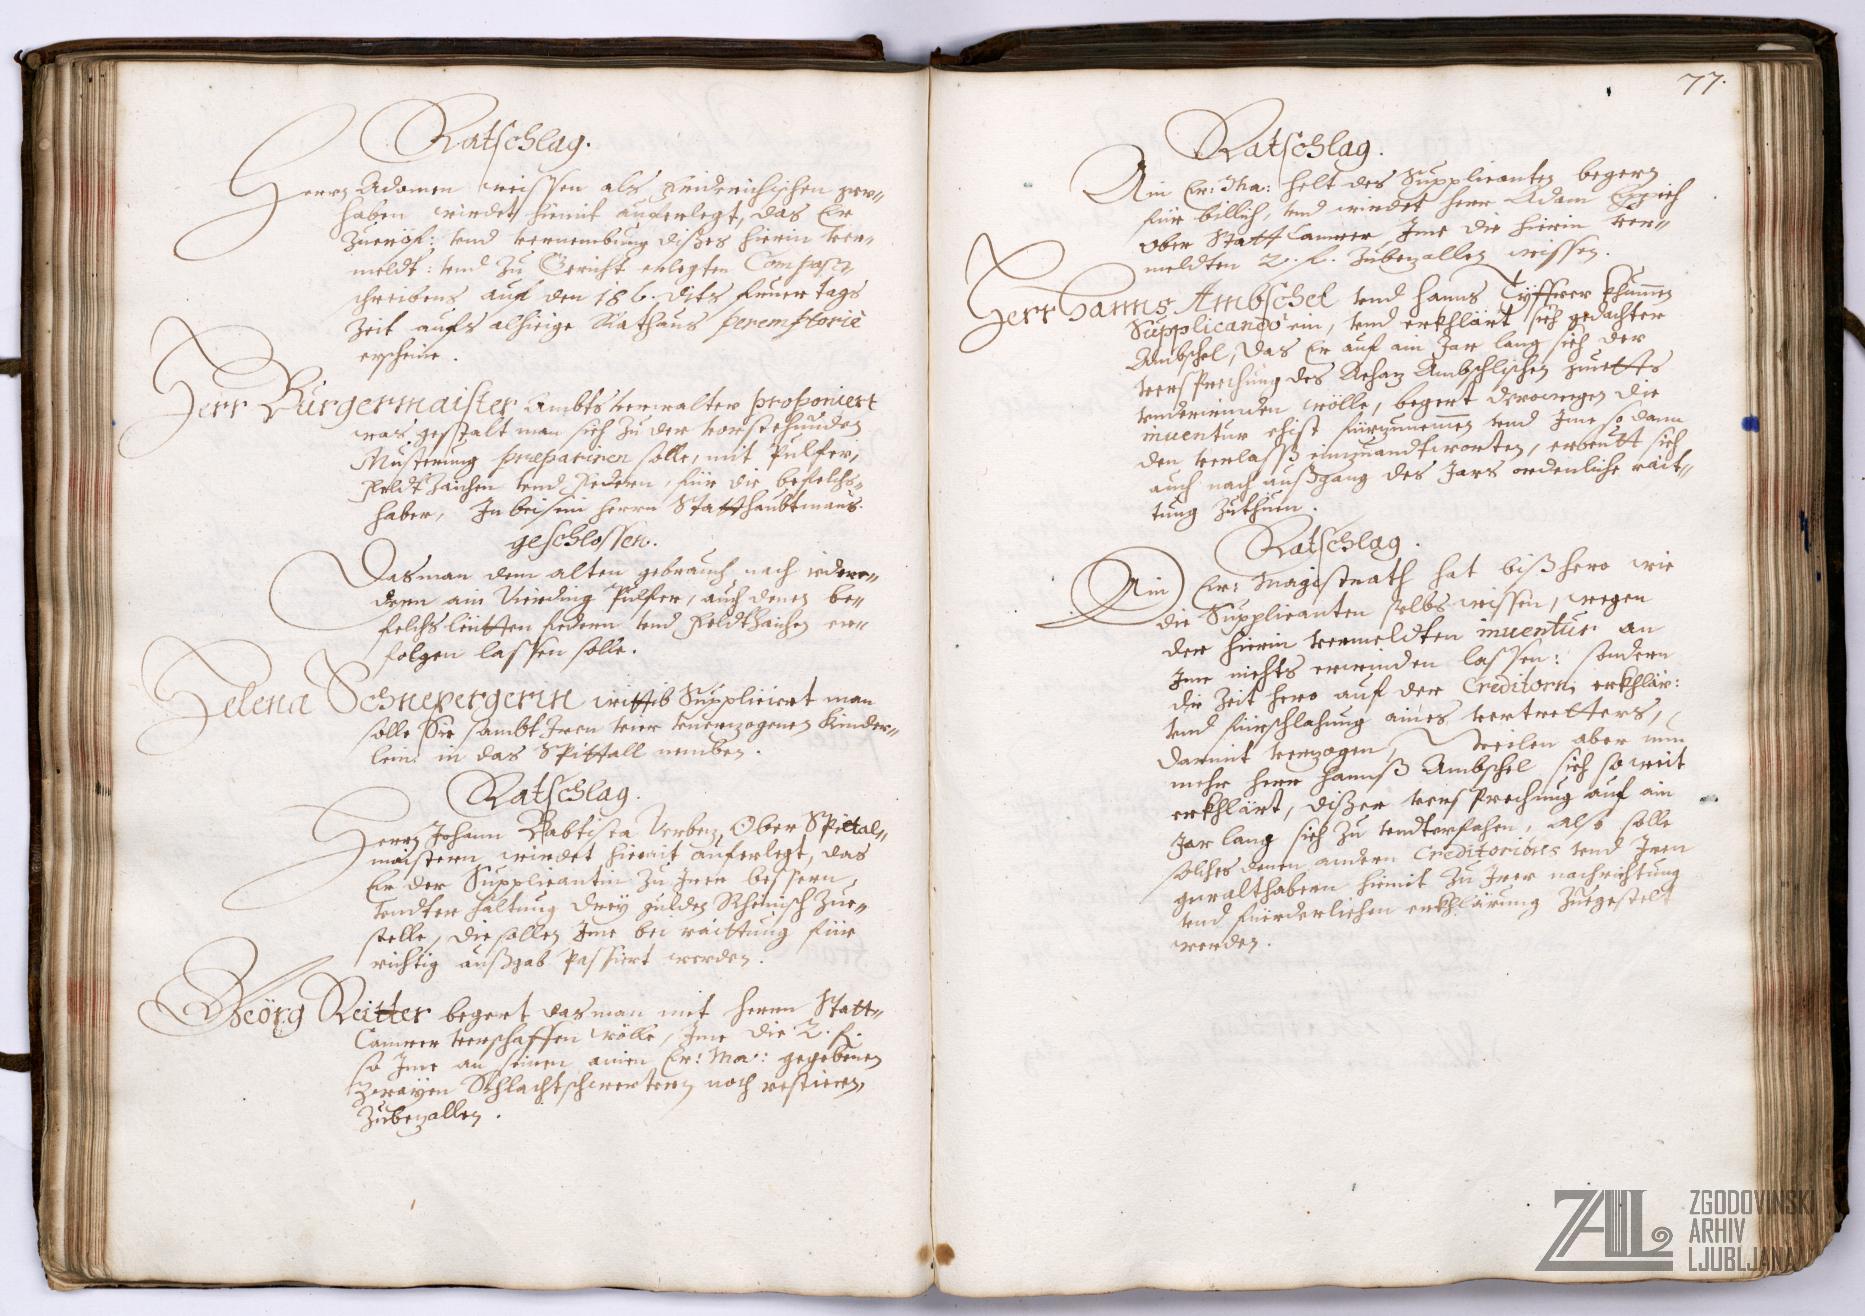 Ratschlag.
Herrn Adamen weissen als Fridrichischen ger-
haben wirdet hiemit auferlegt, das Er
zueröf: vnd vernembung dißes hierin ver-
meldt: vnd zu Gericht erlegten Compass-
schreibens auf den 18 6. dits früer tags
Zeit aufs alhieige Rathaus peremptorie
erscheine.
Herr Burgermaister Ambtsverwalter proponiert
was gestalt man sich zu der vorstehunden
Musterung præpariren solle, mit Pulfer,
Feldtzaichen vnd Federn, für die befelchs-
haber, In beisein herrn Statthaubtmans.
geschlossen.
Das man dem alten gebrauch nach iedwe-
dern ain Vierding Pulfer, auch denen be-
felchsleütten Federn vnd Feldtzaichen er-
folgen lassen solle.
Helena Schnepergerin wittib Suppliciert man
solle Sie sambt Iren vier vnerzogenen Kinder-
lein in das Spittall nemben.
Ratschlag.
Herrn Johann Babtista Verbez Ober Spittal-
maistern wirdet hiemit auferlegt, das
Er der Supplicantin zu Irer bessern
vndterhaltung drey gulden Rheinisch zue-
stelle, die sollen Ime bei raittung für
richtig außgab passiert werden.
Geörg Reitter begert das man mit herrn Statt-
Camrer verschaffen wölle, Ime die 2. f.
so Ime an seinen ainen Er: Ma: gegebenen
zwayen Schlachtschwertern noch restieren,
zubezallen.
77.
Ratschlag.
Ain Er: Ma: helt des Supplicanten begern
für billich, vnd wirdet herr Adam
Ober Statt Camrer Ime die hierin ver-
meldten 2. f. zubezallen wissen.
Herr Hanns Ambschel vnd Hanns Tyfferer khumen
Supplicando ein, vnd erkhlärt sich gedachter
Ambschel, das Er auf ain Jar lang sich der
versprechung des Ambschlischen guetts
vnderwinden wölle, begert derowegen die
inuentur ehist fürzunemen vnd Ime so dann
den verlaß einzuandtworten, erbeutt sich
auch nach außgang des Jars ordenliche rait-
tung zuthuen.
Ratschlag.
Ain Er: Magistrath hat bißhero wie
die Supplicanten selbs wissen, wegen
der hierin vermeldten inuentur an
Ime nichts erwinden lassen: sondern
die Zeit hero auf der Creditorn erkhlär:
vnd fürschlahung aines vertretters,
darmit verzogen, Weilen aber nun
mehr herr Hannß Ambschel sich soweit
erkhlärt, dißer versprechung auf ain
Jar lang sich zu vndterfahen, Als solle
solches denen andern Creditoribus vnd Iren
gwalthabern hiemit zu Irer nachrichtung
vnd fürderlichen erkhlärung zuegestelt
werden.
ZAL
ZGODOVINSKI
ARHIV
LJUBLJANA